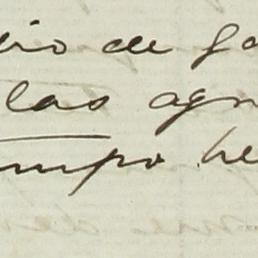 dio de ga
las agu
empo he